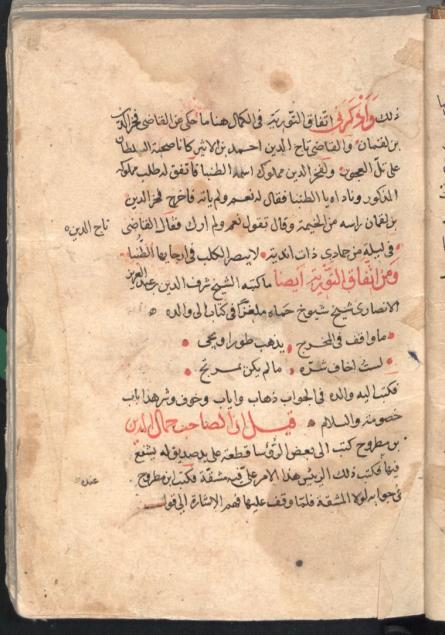 ذلك وأذكرني اتفاق التورية في الكمال هنا ما حكي عن القاضي فخر الدين
بن لقمان والقاضي تاج الدين احمد بن الاثير كانا صحبة السلطان
على تل العجول ولفخر الدين مملوك اسمه الطنبا فاتفق له طلب مملوكه
المذكور وناداه يا الطنبا فقال له نعم ولم ياته فاخرج فخر الدين
بن لقمان راسه من الخيمة وقال تقول نعم ولم ارك فقال القاضي
تاج الدين
في ليلة من جمادى ذات اندية لا يبصر الكلب في ارجايها الطنبا
ومن اتفاق التورية ايضا ما كتبه الشيخ شرف الدين عبد العزيز
الانصاري شيخ شيوخ حماه ملغزا في كتاب الى والده
ما واقف في المخرج يذهب طورا ويجي
لست اخاف شره ما لم يكن بمرتج
فكتب اليه والده في الجواب ذهاب واياب وخوف وشر هذا باب
خصومة والسلام قيل ان الصاحب جمال الدين
بن مطروح كتب الى بعض الرؤسا رقعة على يد صديق له يشفع
فيها فكتب ذلك الرئيس هذا الامر علي فيه مشقة فكتب ابن مطروح
في جوابه لولا المشقة فلما وقف عليها فهم الاشارة الى قول